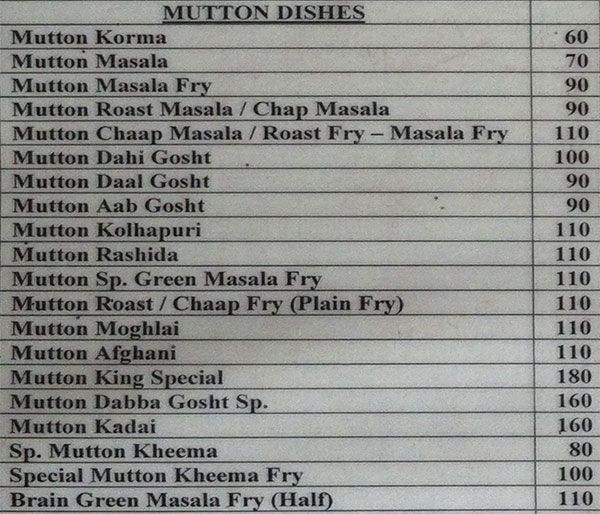 MUTTON DISHES
Mutton Korma 60
Mutton Masala 70
Mutton Masala Fry 90
Mutton Roast Masala / Chap Masala 90
Mutton Chaap Masala / Roast Fry – Masala Fry 110
Mutton Dahi Gosht 100
Mutton Daal Gosht 90
Mutton Aab Gosht 90
Mutton Kolhapuri 110
Mutton Rashida 110
Mutton Sp. Green Masala Fry 110
Mutton Roast / Chaap Fry (Plain Fry) 110
Mutton Moghlai 110
Mutton Afghani 110
Mutton King Special 180
Mutton Dabba Gosht Sp. 160
Mutton Kadai 160
Sp. Mutton Kheema 80
Special Mutton Kheema Fry 100
Brain Green Masala Fry (Half) 110